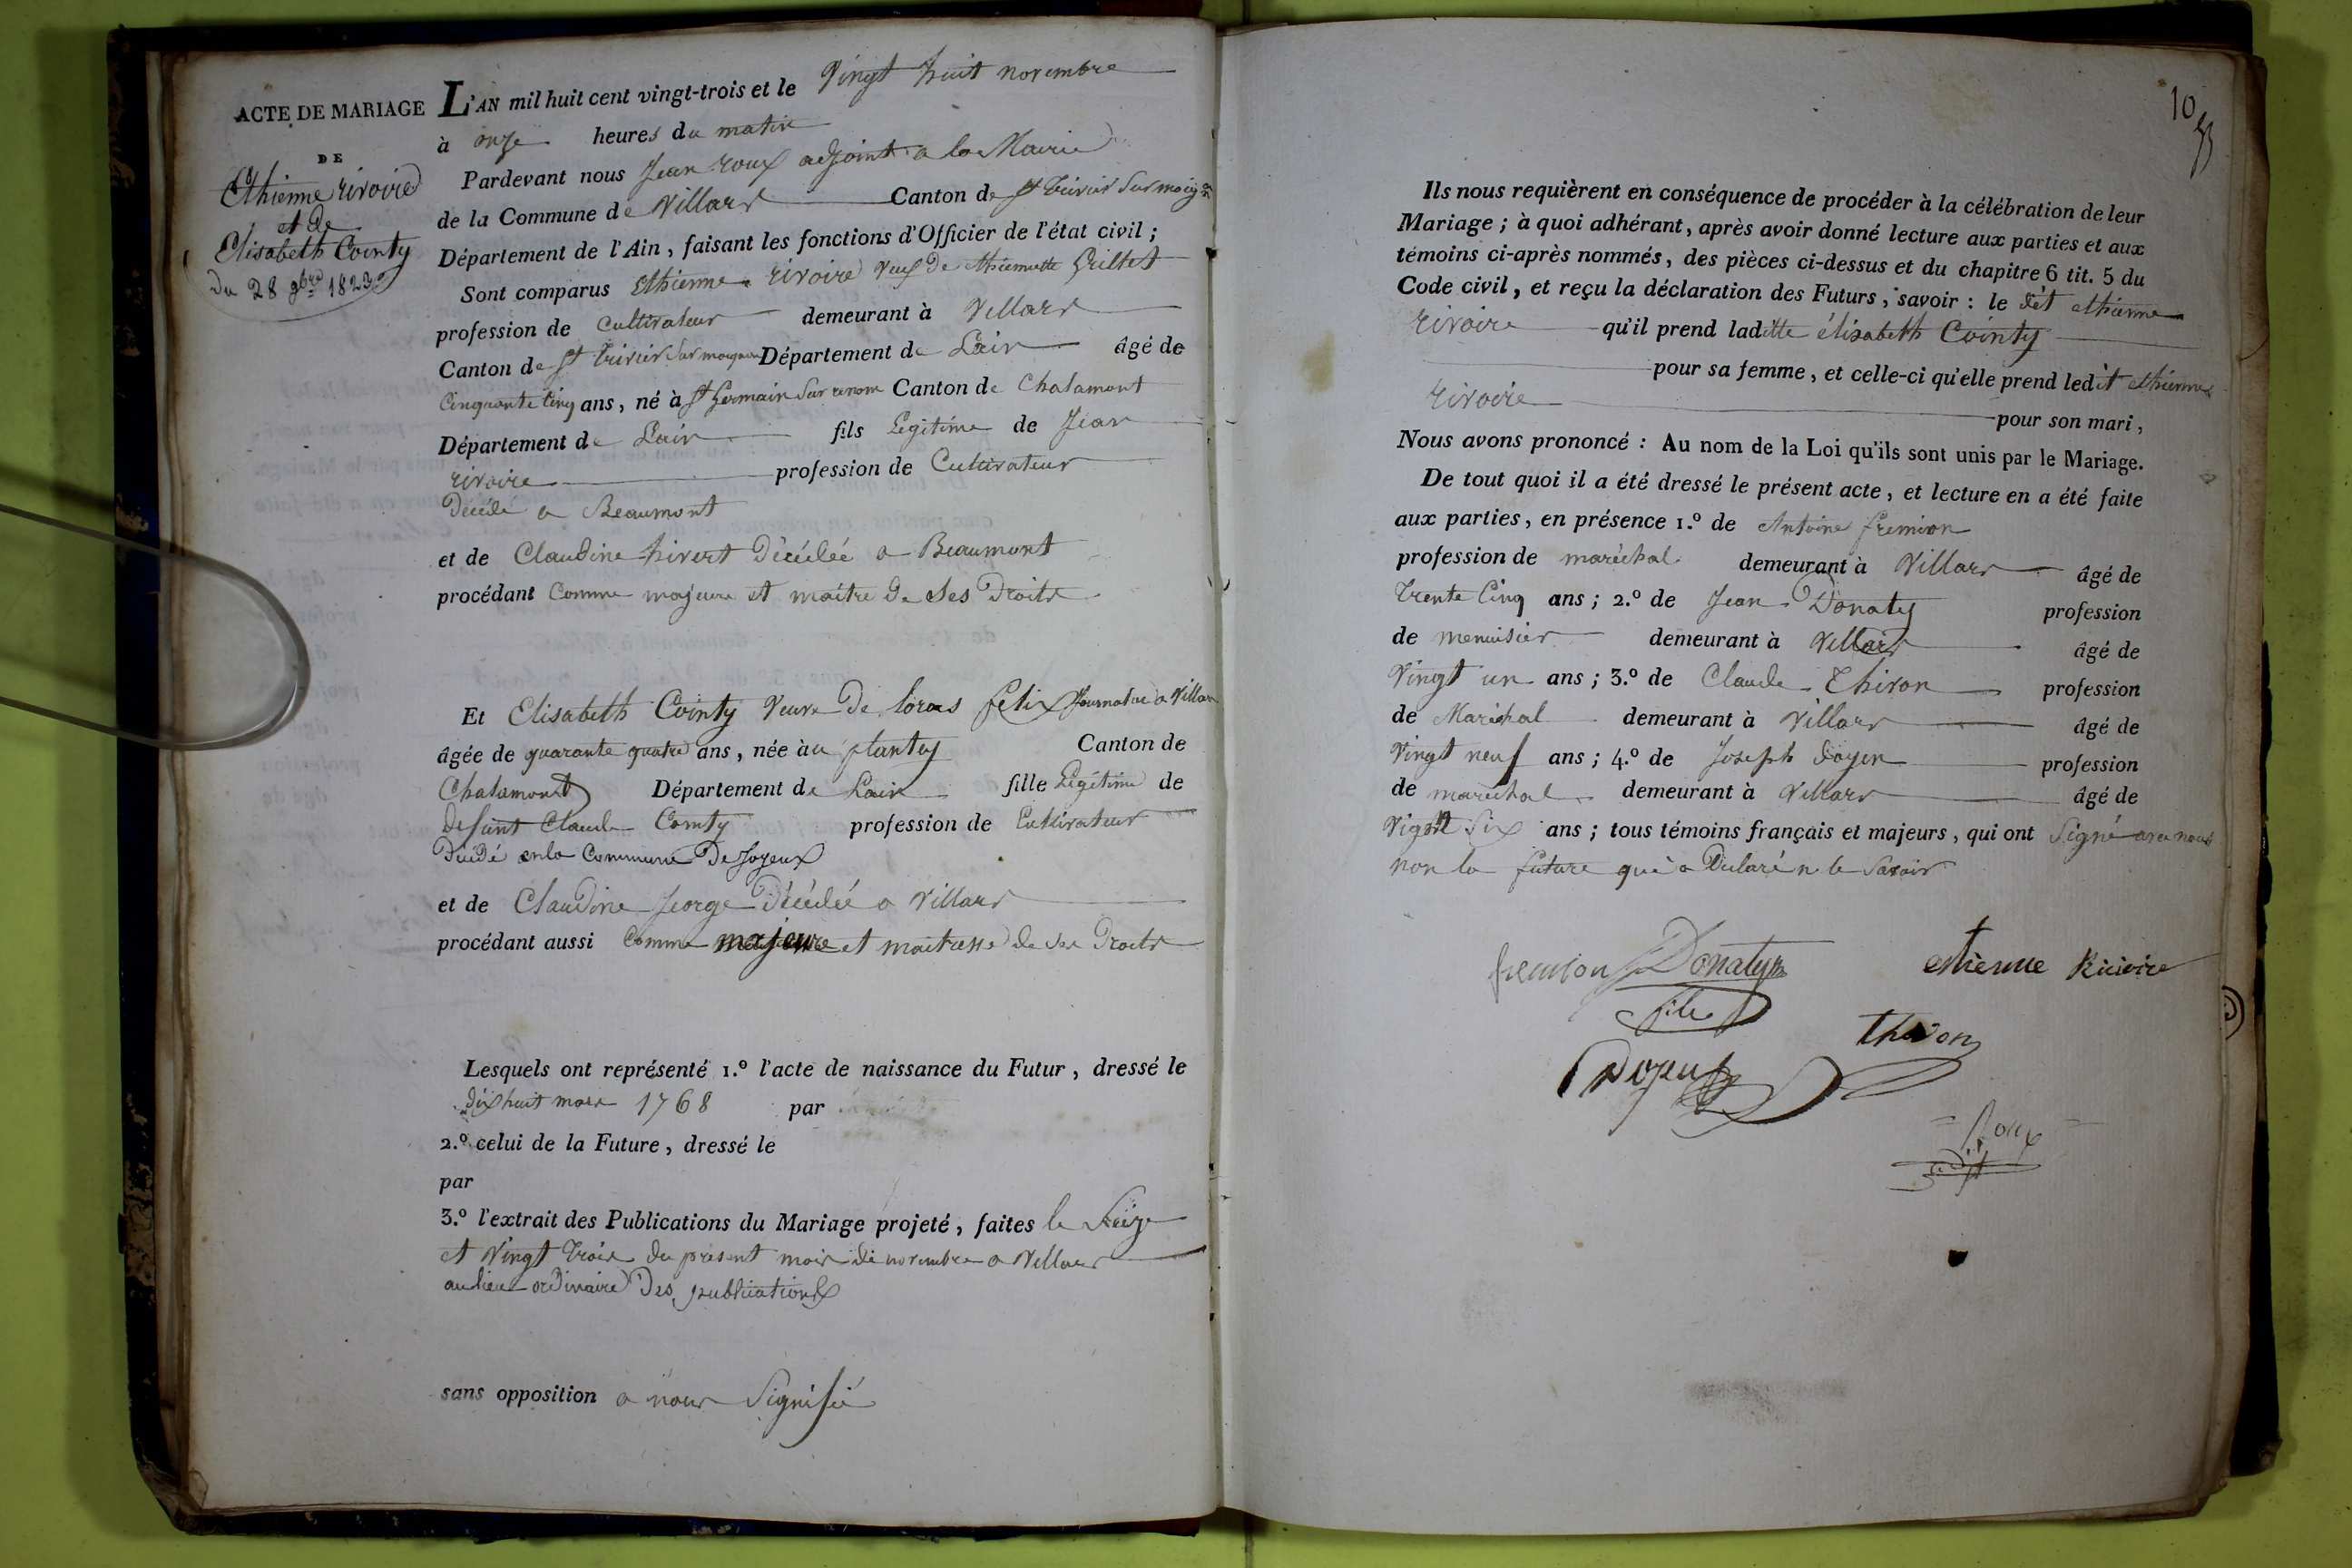 ACTE DE MARIAGE
DE
Ethienne rivoire
et de
Elisabeth Cointy
Du 28 9bre 1823
L'AN mil huit cent vingt-trois et le Vingt huit novembre
à onze heures du matin
Pardevant nous Jean roux adjoint a la Mairie
de la Commune de Villars Canton de St trivier Sur moignan
Département de l'Ain, faisant les fonctions d'Officier de l'état civil;
Sont comparus Ethienne rivoire veuf De thiennette Grillet
profession de Cultivateur demeurant à Villars
Canton de St trivier Sur moignan Département de Lain âgé de
Cinquante Cinq ans, né à St Germain Sur renom Canton de Chalamont
Département de Lain fils Légitime de Jean
rivoire profession de Cultivateur
Décédé a Beaumont
et de Claudine hivert Décédée a Beaumont
procédant Comme majeure et maitre De Ses Droits
Et Elisabeth Cointy Veuve De loras felix a Villars
âgée de quarante quatre ans, née àu plantay Canton de
Chalamont Département de Lain fille Légitime de
Defunt Claude Cointy profession de Cultivateur
Décédé en la Commune De Joyeux
et de Claudine George Décédée a Villars
procédant aussi Comme majeure et maitresse de Ses Droits
Lesquels ont représenté 1.º l'acte de naissance du Futur, dressé le
Dix huit mars 1768 par
2.º celui de la Future, dressé le
par
3.º l'extrait des Publications du Mariage projeté, faites le Seize
et Vingt trois du présent mois de novembre a Villars
au lieu ordinaire Des publications
sans opposition a nous Signifié
10
Ils nous requièrent en conséquence de procéder à la célébration de leur
Mariage; à quoi adhérant, après avoir donné lecture aux parties et aux
témoins ci-après nommés, des pièces ci-dessus et du chapitre 6 tit. 5 du
Code civil, et reçu la déclaration des Futurs, savoir: le dit ethienne
rivoire qu'il prend laditte élisabeth Cointy
pour sa femme, et celle-ci qu'elle prend ledit ethienne
rivoire pour son mari,
Nous avons prononcé: Au nom de la Loi qu'ils sont unis par le Mariage.
De tout quoi il a été dressé le présent acte, et lecture en a été faite
aux parties, en présence 1.º de Antoine fremion
profession de maréchal demeurant à Villars âgé de
trente Cinq ans; 2.º de Jean Donaty profession
de menuisier demeurant à Villars âgé de
Vingt un ans; 3.º de Claude Thivon profession
de Maréchal demeurant à Villars âgé de
Vingt neuf ans; 4.º de Joseph doyen profession
de maréchal demeurant à Villars âgé de
Vignt Six ans; tous témoins français et majeurs, qui ont Signé avec nous
non la future qui a Déclaré ne le Savoir
fremion Donaty ethienne Rivoire
fils
Thivon
Doyen
Roux
adjt